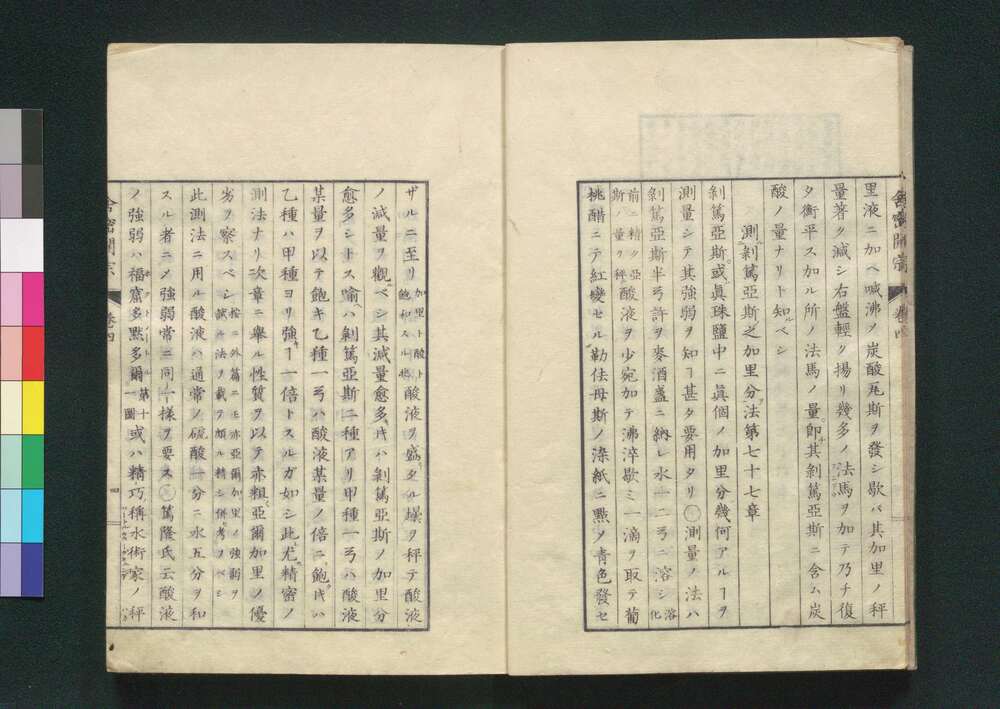 里液ニ加ヘ喊沸ヲ炭酸瓦斯ヲ發シ歇バ其加里ノ秤
量著ク減シ右盤輕ク揚リ幾多ノ法馬ヲ加テ乃チ復
タ衡平スル加ル所ノ法馬ノ量即其剝篤亞斯ニ含ム炭
酸ノ量ナリト知ベシ
測剝篤亞斯之加里分法第七十七章
剝篤亞斯或眞珠鹽中ニ眞個ノ加里分幾何アルヿヲ
測量シテ其強弱ヲ知ヿ甚タ要用タリ〇測量ノ法ハ
剝篤亞斯半弓許ヲ麥酒盞ニ納レ水一二弓ニ溶シ溶化
前ニ精ク亞斯ノ量ヲ秤酸液ヲ少宛加テ沸淬歇ミ一滴ヲ取テ葡
桃醋ニテ紅變セル勒佉母斯ノ染紙ニ點ノ青色發セ
舎密開宗 巻四
ザルニ至リ加里ト酸ト飽和スル時酸液ヲ盛タル壜ヲ秤テ酸液
ノ減量ヲ觀ベシ其減量愈多キハ剝篤亞斯ノ加里分
愈多シトス喻ハ剝篤亞斯二種アリ甲種一弓ハ酸液
某量ヲ以テ飽キ乙種一弓ハ酸液某量ノ倍ニ飽キハ
乙種ハ甲種ヨリ強キヿ一倍トスルガ如シ此尤精密ノ
測法ナリ次章ニ擧ル性質ヲ以テ亦粗亞爾加里ノ優
劣ヲ察スベシ按ニ外篇ニモ亦亞爾加里ノ強弱ヲ試ル法ヲ載テ頗ル精シ併考フベシ
此測法ニ用ル酸液ハ通常ノ硫酸一分ニ水五分ヲ和
スル者ニメ強弱常ニ同一樣ヲ要ス〇篤隆氏云酸液
ノ強弱ハ福齋多點多爾第十一圖或ハ精巧稱水術家ノ秤
舎密開宗 巻四 四